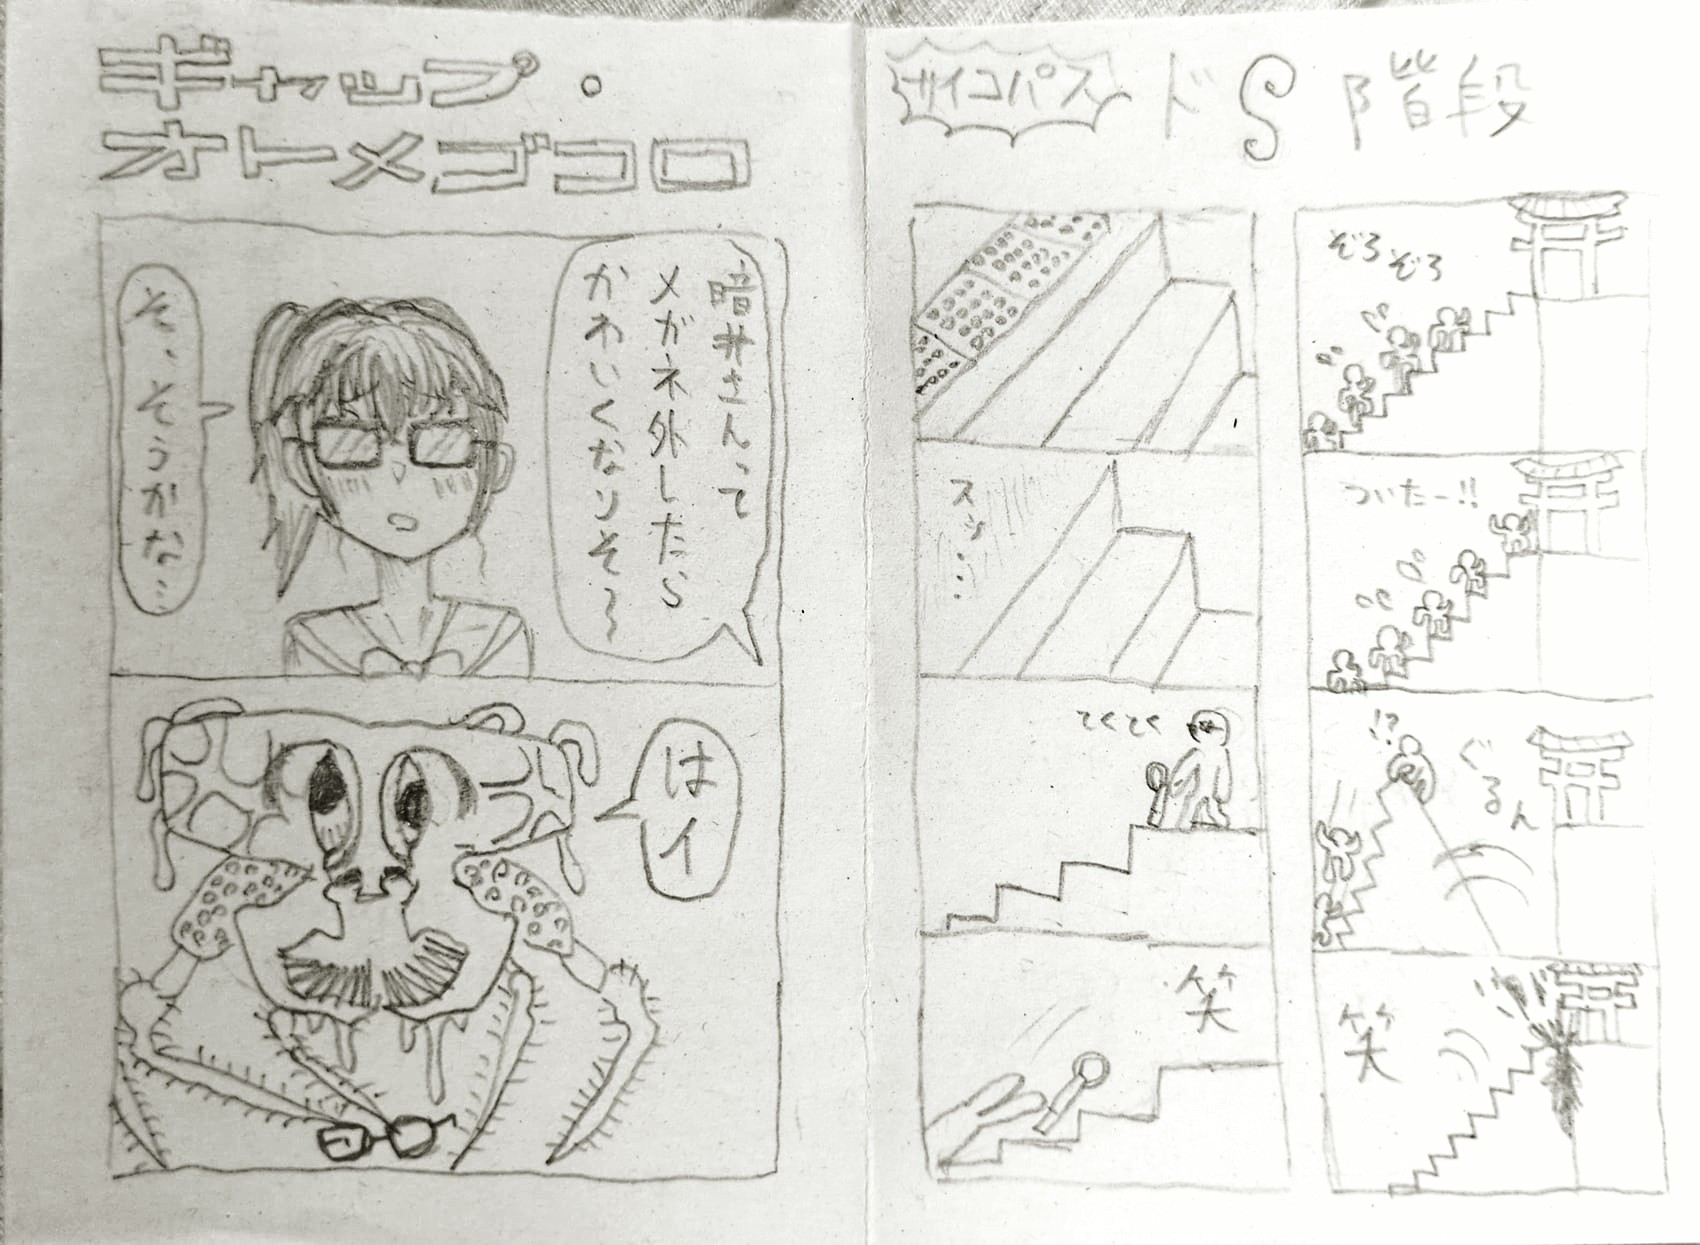 ギャップ・
オトメゴコロ
暗井さんって
メガネ外したら
かわいくなりそ〜
そ、そうかな…
はイ
サイコパス
ドS階段
ぞろぞろ
ついたー!!
!?
ぐるん
笑
スッ…
てくてく
笑